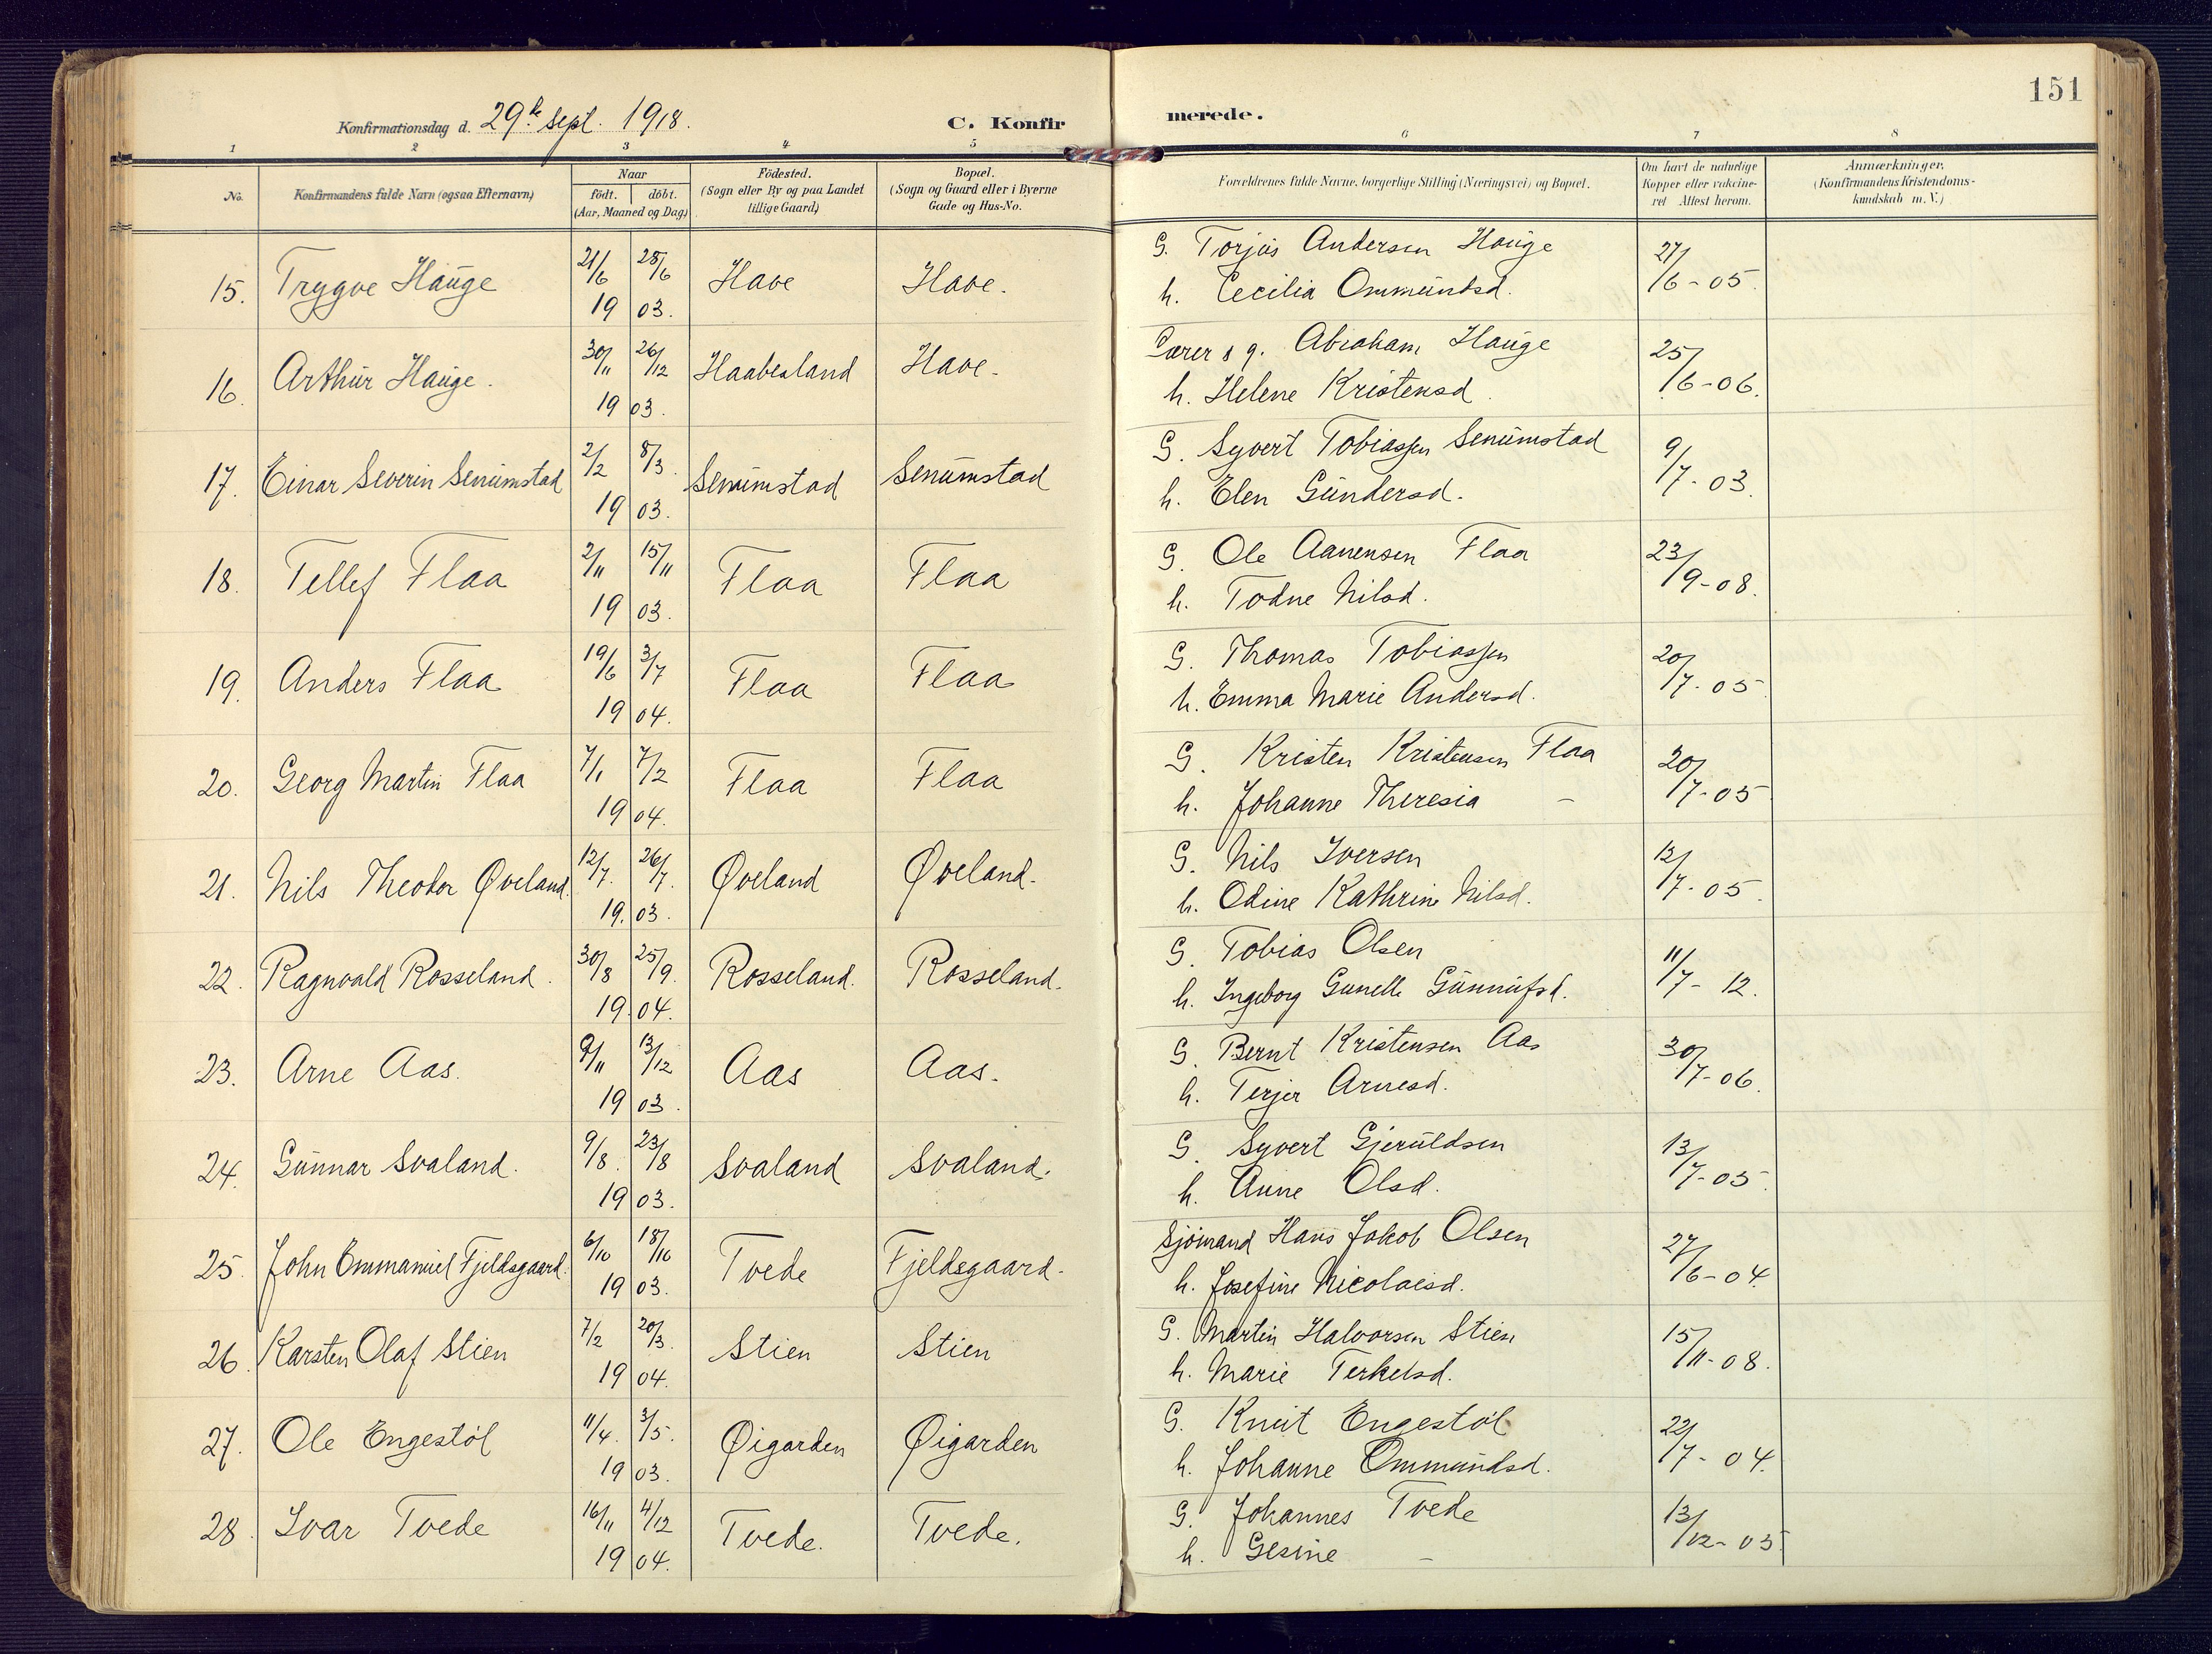 151
Konfirmationsdag d. 29de Sept. 1918.
C. Konfirmerede.
1 2 3 4 5 6 7 8
No. Konfirmandens fulde Navn (ogsaa Efternavn) Naar födt. döbt. (Aar, Maaned og Dag) Födested. (Sogn eller By og paa Landet tillige Gaard) Bopæl. (Sogn og Gaard eller i Byerne Gade og Hus-No. Forældrenes fulde Navne, borgerlige Stilling (Næringsvei) og Bopæl. Om havt de naturlige Kopper eller vaccineret Attest herom. Anmærkninger, (Konfirmandens Kristendomskundskab m. V.)
15. Trygve Hauge 21/6 28/6 1903. Have Have. G. Torjus Andersen Hauge 27/6-05
h. Cecilia Ommundsd.
16. Arthur Hauge. 30/11 26/12 1903. Haabesland Have. Lærer & g. Abraham Hauge 25/6-06.
h. Helene Kristensd.
17. Einar Severin Senumstad 2/2 8/3. 1903. Senumstad Senumstad G. Syvert Tobiassen Senumstad 9/7-03.
h. Elen Gundersd.
18. Tellef Flaa 2/11 15/11 1903. Flaa Flaa G. Ole Aanensen Flaa 23/9-08.
h. Todne Nilsd.
19. Anders Flaa 19/6 3/7 1904. Flaa Flaa G. Thomas Tobiassen 20/7-05
h. Emma Marie Andersd.
20. Georg Martin Flaa 7/1 7/2 1904. Flaa Flaa G. Kristen Kristensen Flaa 20/7-05
h. Johanne Theresia -
21. Nils Theodor Øveland. 12/7. 26/7. 19.03. Øveland Øveland. G. Nils Iversen 12/7-05.
h. Odine Kathrine Nilsd.
22. Ragnvald Rosseland. 30/8 25/9. 19.04. Rosseland. Rosseland. G. Tobias Olsen 11/7-12.
h. Ingeborg Gunelle Gunnufsd.
23. Arne Aas. 9/11 13/12 1903. Aas Aas. G. Bernt Kristensen Aas 30/7-06.
h. Terjer Arnesd.
24. Gunnar Svaland. 9/8. 23/8 1903. Svaland Svaland. G. Syvert Gjeruldsen 13/7-05.
h. Anne Olsd.
25. John Emmanuel Fjeldsgaard. 6/10 18/10 1903. Tvede Fjeldsgaard. Sjömand Hans Jakob Olsen 27/6-04.
h. Josefine Nicolaisd.
26. Karsten Olaf Stien 7/2 20/3. 1904. Stien Stien G. Martin Halvorsen Stien 15/11-08.
h. Marie Terkelsd.
27. Ole Engestöl 11/4. 3/5. 1903. Øigarden Øigarden G. Knut Engestöl 22/7-04.
h. Johanne Ommundsd.
28. Ivar Tvede 16/11 4/12 1904. Tvede. Tvede. G. Johannes Tvede 13/12-05
h. Gesine -